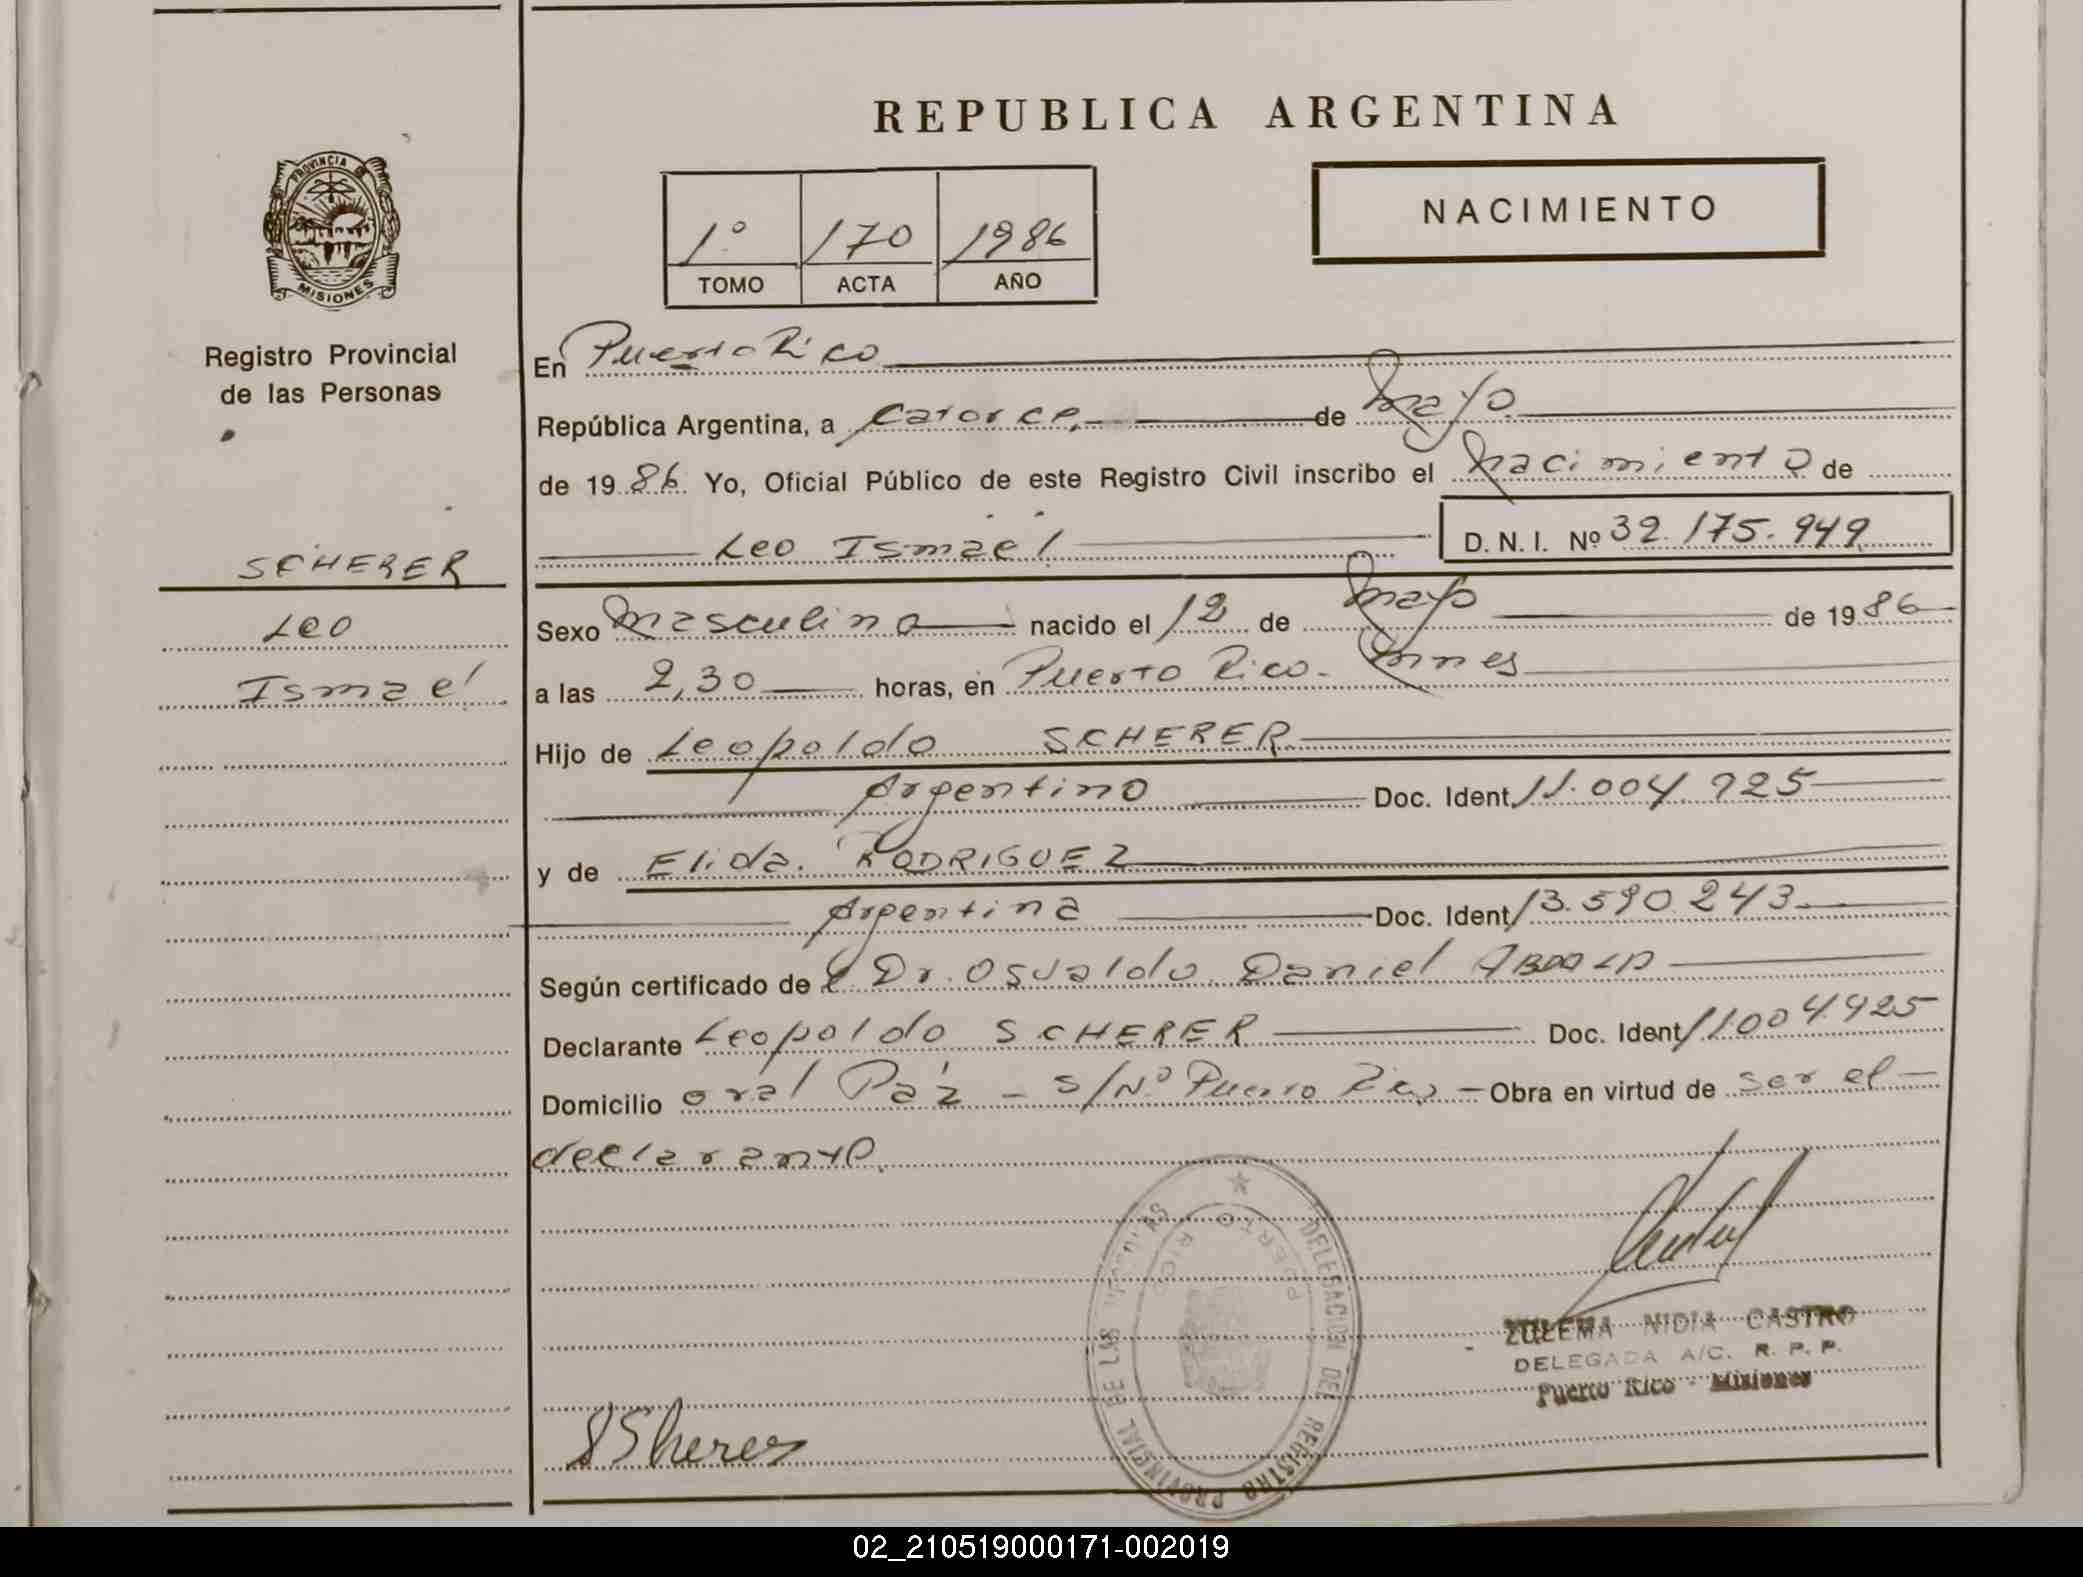 REPUBLICA ARGENTINA
PROVINCIA
MISIONES
Registro Provincial
de las Personas
SCHERER
Leo
Ismael
1º 170 1986
TOMO ACTA AÑO
NACIMIENTO
En Puerto Rico
República Argentina, a catorce de mayo
de 1986 Yo, Oficial Público de este Registro Civil inscribo el nacimiento de
Leo Ismael D. N. I. Nº 32.175.949
Sexo masculino nacido el 12 de mayo de 1986
a las 2,30 horas, en Puerto Rico - mnes
Hijo de Leopoldo SCHERER
Argentino Doc. Ident. 11.004.925
y de Elida RODRIGUEZ
Argentina Doc. Ident 13.590.243
Según certificado de Dr. Osvaldo Daniel
Declarante Leopoldo SCHERER Doc. Ident 11.004.925
Domicilio Paz - S/Nº Puerto Rico - Obra en virtud de ser el
declarante.
DELEGACION DEL REGISTRO PROVINCIAL DE LAS PERSONAS
PUERTO RICO
ZULEMA NIDIA CASTRO
DELEGADA A/C. R. P. P.
Puerto Rico - Misiones
02_210519000171-002019